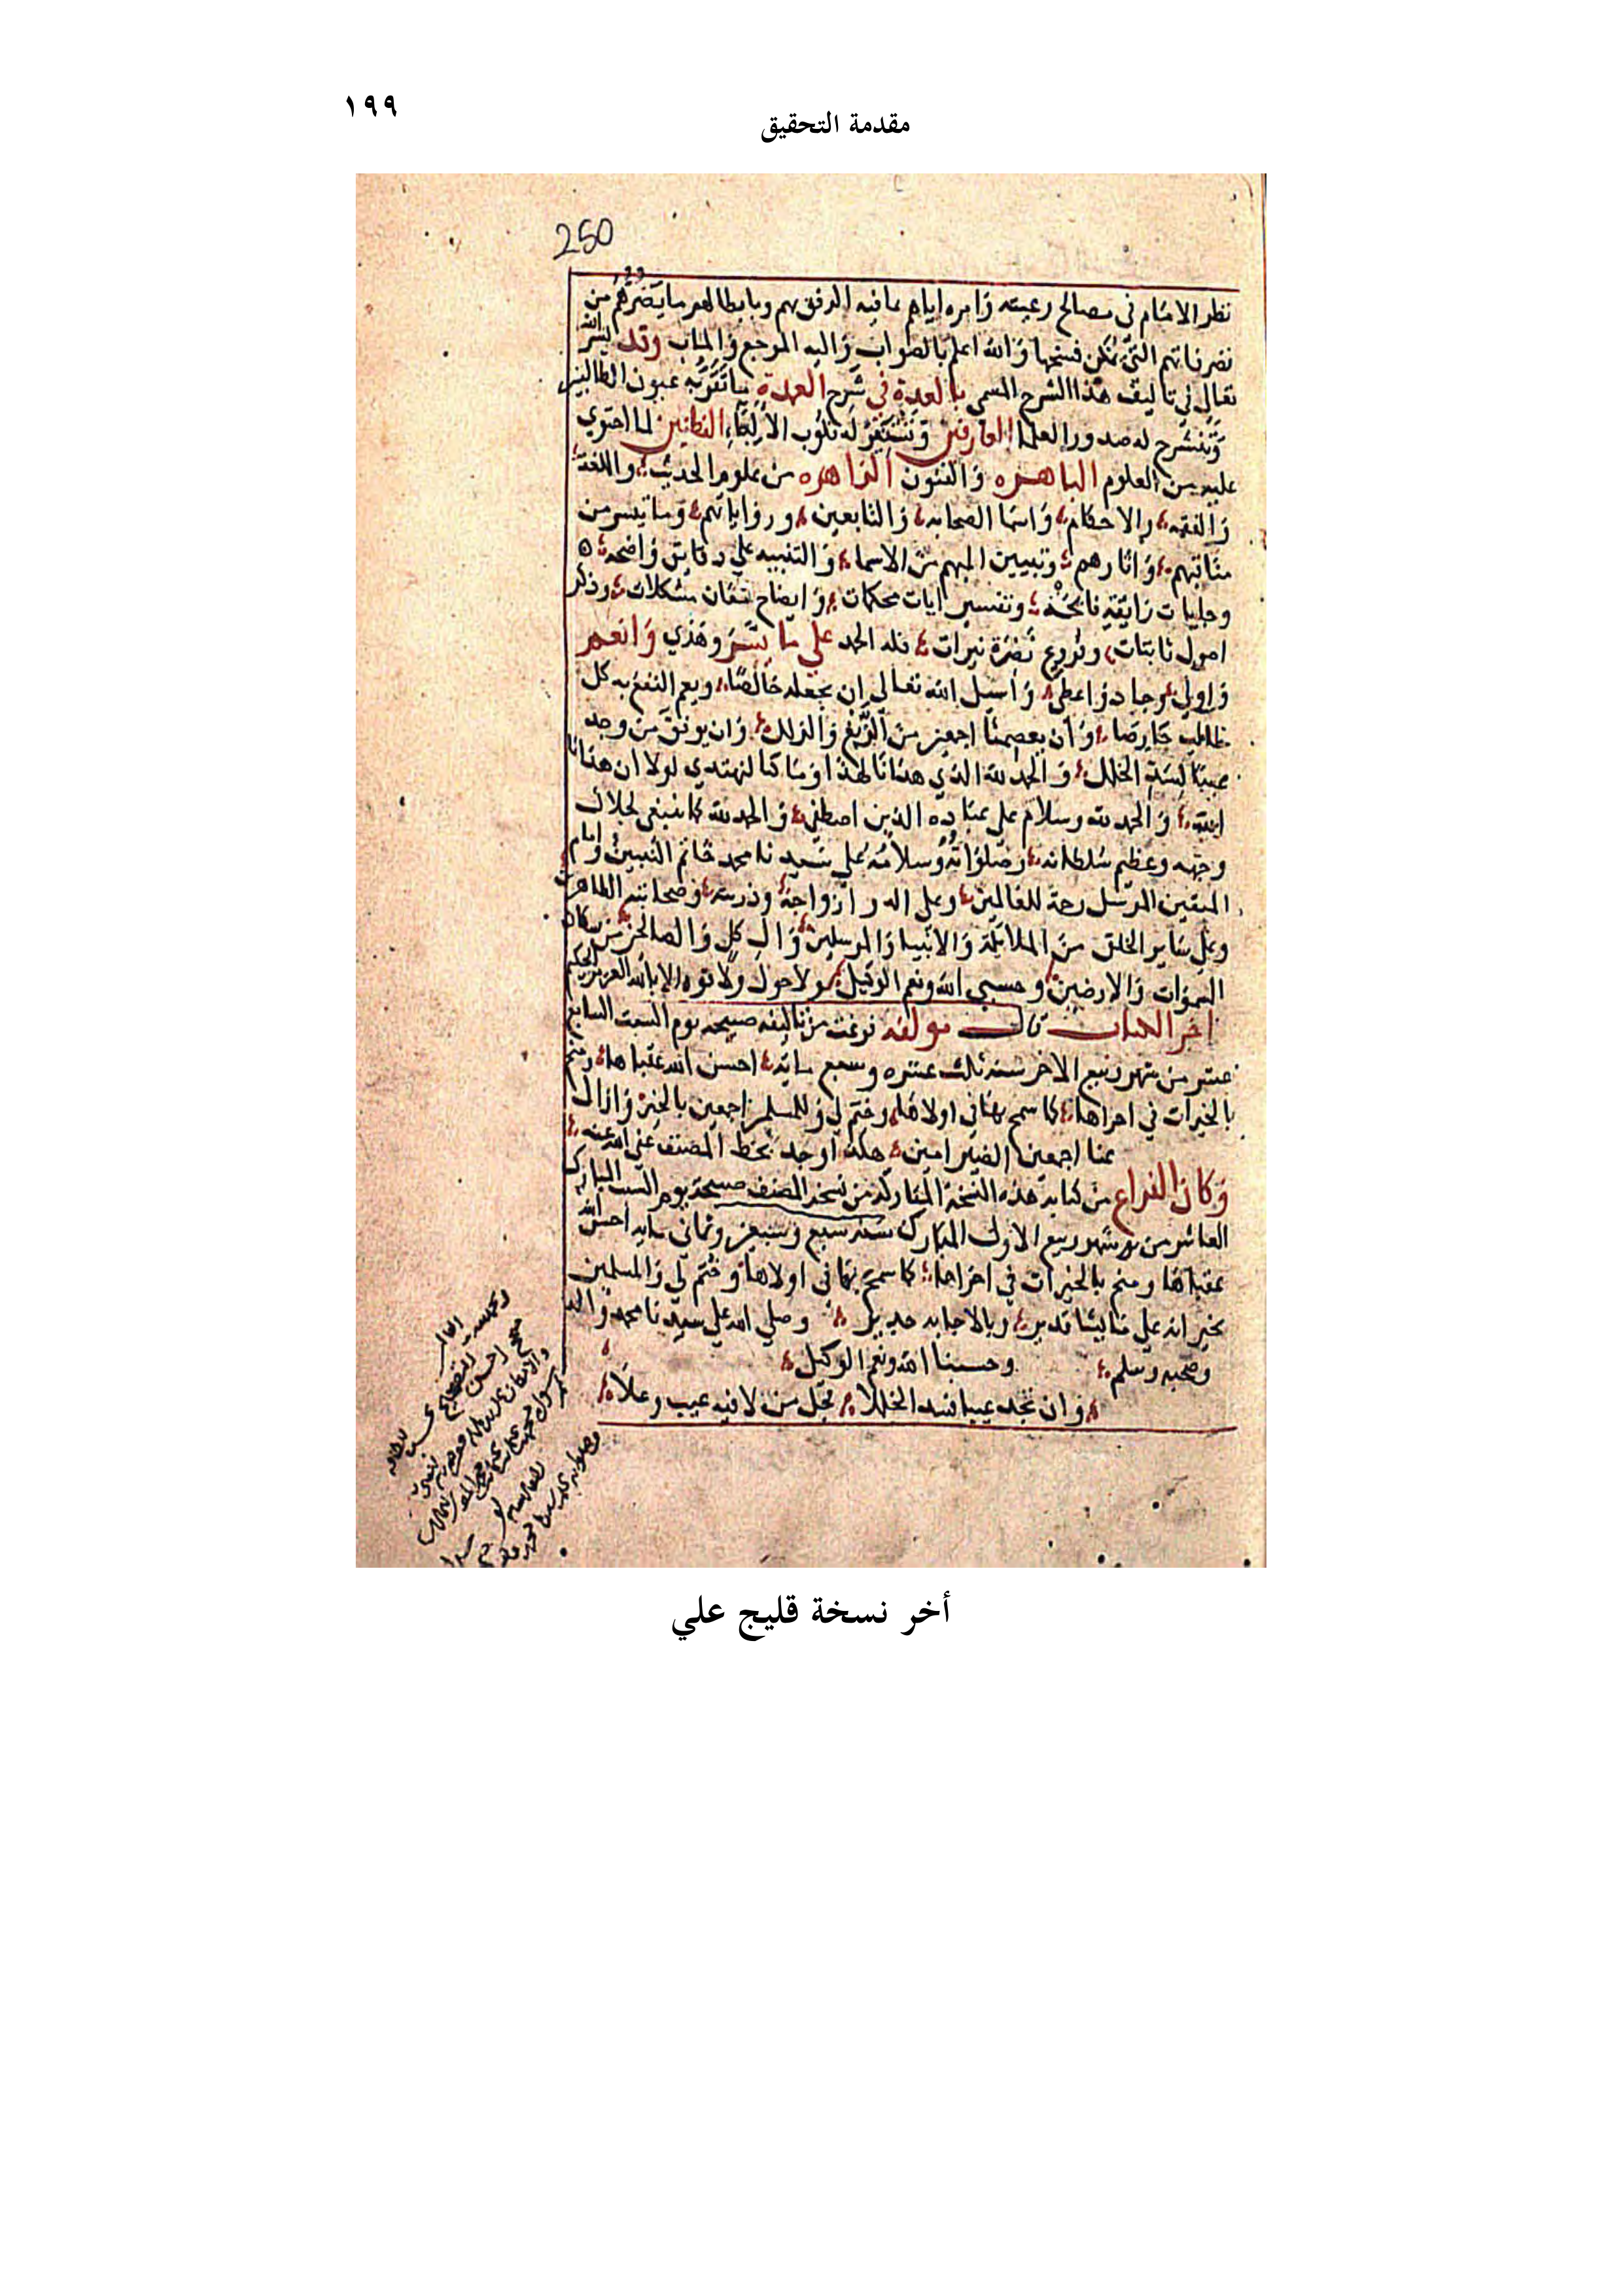 مقدمة التحقيق
١٩٩
250
نظر الامام في مصالح رعيته وامره اياهم بما فيه الرفق بهم وبابطالهم ما يضرهم من
تصرفاتهم التي يمكن فسخها والله اعلم بالصواب واليه المرجع والماب وقد يسر الله
تعالى في تاليف هذا الشرح المسمى بالعدة في شرح العمدة ما تقر به عيون الطالبين
وتنشرح له صدور العلما العارفين له قلوب الالباء الفطانين لما احتوي
عليه من العلوم الباهره والفنون الزاهره من علوم الحديث واللغة
والفقه والاحكام واسما الصحابه والتابعين ورواياتهم وما تيسر من
مناقبهم واثارهم وتبيين المبهم من الاسما والتنبيه علي دقايق واضحه
وجليات رايقة وتفسير ايات محكمات وايضاح معان مشكلات وذكر
اصول ثابتات وفروع نضرة نيرات فله الحمد علي ما يسر وهدي وانعم
واولي وجاد واعطى واسيل الله تعالى ان يجعله خالصا ويعم النفع به كل
طالب وان يعصمنا اجمعين من الزيغ والزلل وان يوفق من وجد
عيبا لسد الخلل والحمد لله الذي هدانا لهذا وما كنا لنهتدي لولا ان هدانا
الله والحمد لله وسلام على عباده الذين اصطفى والحمد لله كما ينبغي لجلال
وجهه وعظيم سلطانه وصلواته وسلامه على سيدنا محمد خاتم النبيين وامام
المتقين المرسل رحمة للعالمين وعلى اله وازواجه وذريته وصحابته الطاهرين
وعلى ساير الخلق من الملايكة والانبيا والمرسلين وال كل والصالحين من سكان
السموات والارضين وحسبي الله ونعم الوكيل ولا حول ولا قوه الا بالله العزيز الحكيم
اخر الكتاب قال مولفه فرغت من تاليفه صبيحه يوم السبت السابع
عشر من شهر ربيع الاخر سنه ثلث عشره وسبع مايه احسن الله عقباها ومنح
بالخيرات في اخراها كما سمح بهاني اولاها وختم لي وللمسلمين اجمعين بالخير وازال
عنا اجمعين الضير امين هكذا وجد بخط المصنف عفي الله عنه
وكان الفراغ من كتابة هذه النسخة المباركه من نسخه المصنف صبيحة يوم السبت المبارك
العاشر من شهر ربيع الاول المبارك سنه سبع وسبعين وثماني مايه احسن الله
عقباها ومنح بالخيرات في اخراها كما سمح بهاني اولاها وختم لي والمسلمين
بخير انه علي ما يشا قدير وبالاجابه جدير وصلي الله علي سيدنا محمد واله
وصحبه وسلم وحسبنا الله ونعم الوكيل
وان تجد عيبا فسد الخللا فجل من لا فيه عيب وعلا
أخر نسخة قليج علي